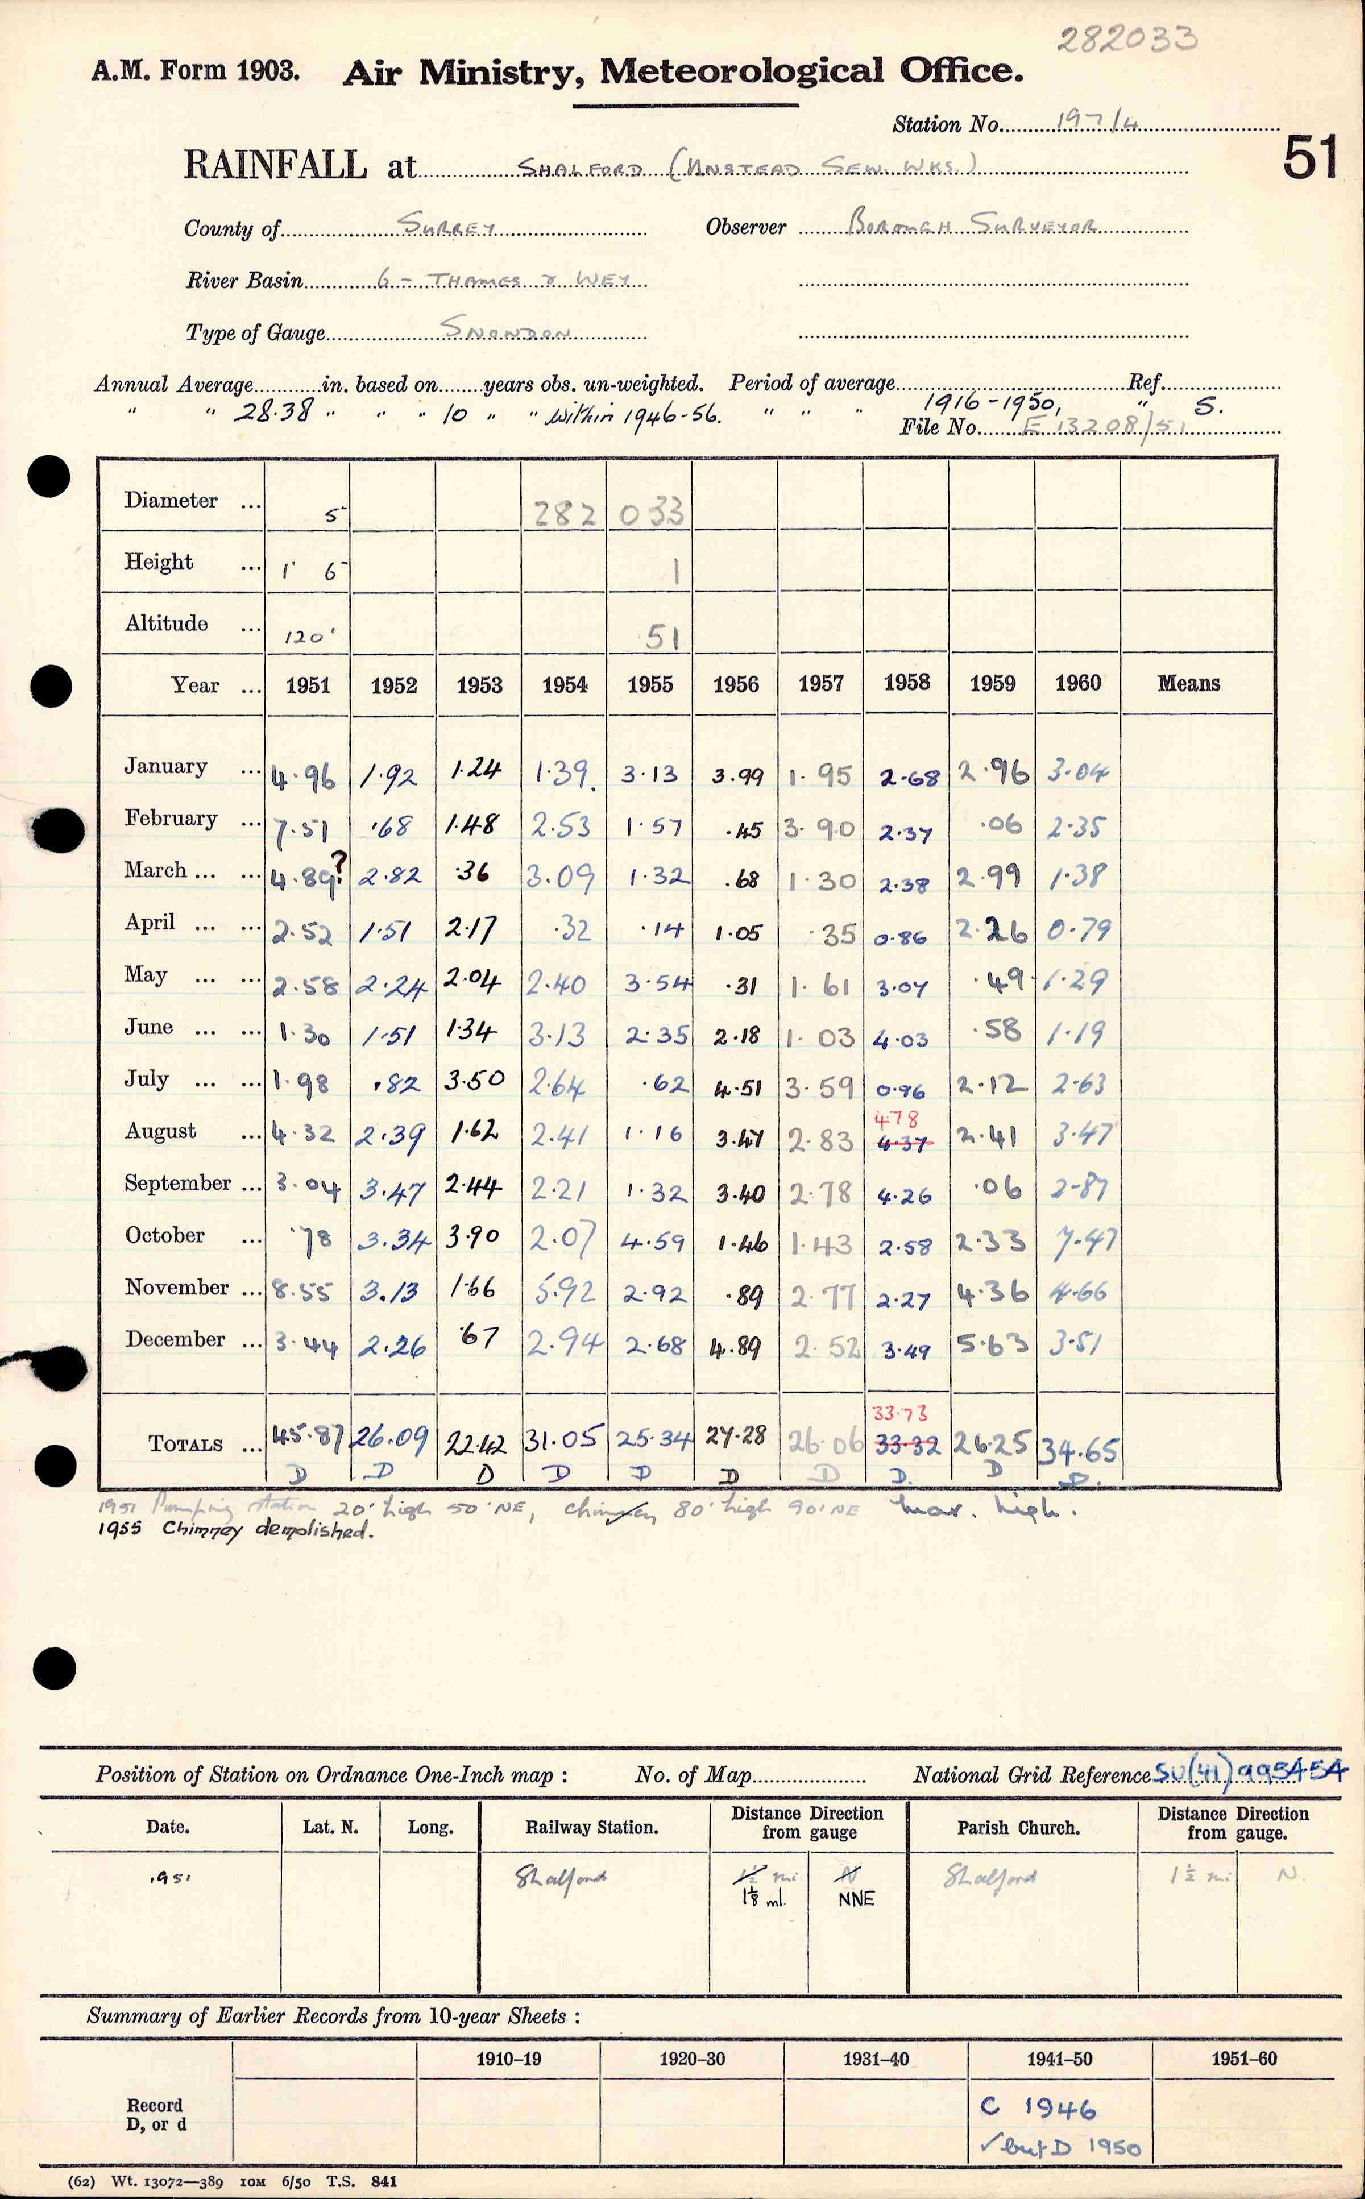 282033
A.M. Form 1903. Air Ministry, Meteorological Office.
Station No. 197/4
51
RAINFALL at SHALFORD (UNSTEAD SEW. WKS.)
County of SURREY Observer BOROUGH SURVEYOR
River Basin 6 - THAMES & WEY
Type of Gauge SNOWDON
Annual Average in. based on years obs. un-weighted. Period of average Ref.
" " 28.38 " " " 10 " " within 1946-56. " " " 1916-1950, " S.
File No. E 13208/51
Diameter ... 5 282 033
Height ... 1' 6 1
Altitude ... 120' 51
Year ... 1951 1952 1953 1954 1955 1956 1957 1958 1959 1960 Means
January ... 4.96 1.92 1.24 1.39. 3.13 3.99 1.95 2.68 2.96 3.04
February ... 7.51 .68 1.48 2.53 1.57 .45 3.90 2.37 .06 2.35
March ... ... 4.89? 2.82 .36 3.09 1.32 .68 1.30 2.38 2.99 1.38
April ... ... 2.52 1.51 2.17 .32 .14 1.05 .35 0.86 2.26 0.79
May ... ... 2.58 2.24 2.04 2.40 3.54 .31 1.61 3.07 .49 1.29
June ... ... 1.30 1.51 1.34 3.13 2.35 2.18 1.03 4.03 .58 1.19
July ... ... 1.98 .82 3.50 2.64 .62 4.51 3.59 0.96 2.12 2.63
4.78
August ... 4.32 2.39 1.62 2.41 1.16 3.47 2.83 4.37 2.41 3.47
September ... 3.04 3.47 2.44 2.21 1.32 3.40 2.78 4.26 .06 2.87
October ... .78 3.34 3.90 2.07 4.59 1.46 1.43 2.58 2.33 7.47
November ... 8.55 3.13 1.66 5.92 2.92 .89 2.77 2.27 4.36 4.66
December ... 3.44 2.26 .67 2.94 2.68 4.89 2.52 3.49 5.63 3.51
33.73
TOTALS ... 45.87 26.09 22.42 31.05 25.34 27.28 26.06 33.32 26.25 34.65
D D D D D D D D. D D.
1951 Pumping station 20' high 50' NE, chimney 80' high 90' NE
1955 Chimney demolished.
Position of Station on Ordnance One-Inch map : No. of Map National Grid Reference SU(41)995454
Date. Lat. N. Long. Railway Station. Distance Direction from gauge Parish Church. Distance Direction from gauge.
1951 Shalford 1½ mi N Shalford 1½ mi N.
1⅛ ml. NNE
Summary of Earlier Records from 10-year Sheets :
1910-19 1920-30 1931-40 1941-50 1951-60
Record
D, or d
C 1946
✓ but D 1950
(62) Wt. 13072—389 10M 6/50 T.S. 841